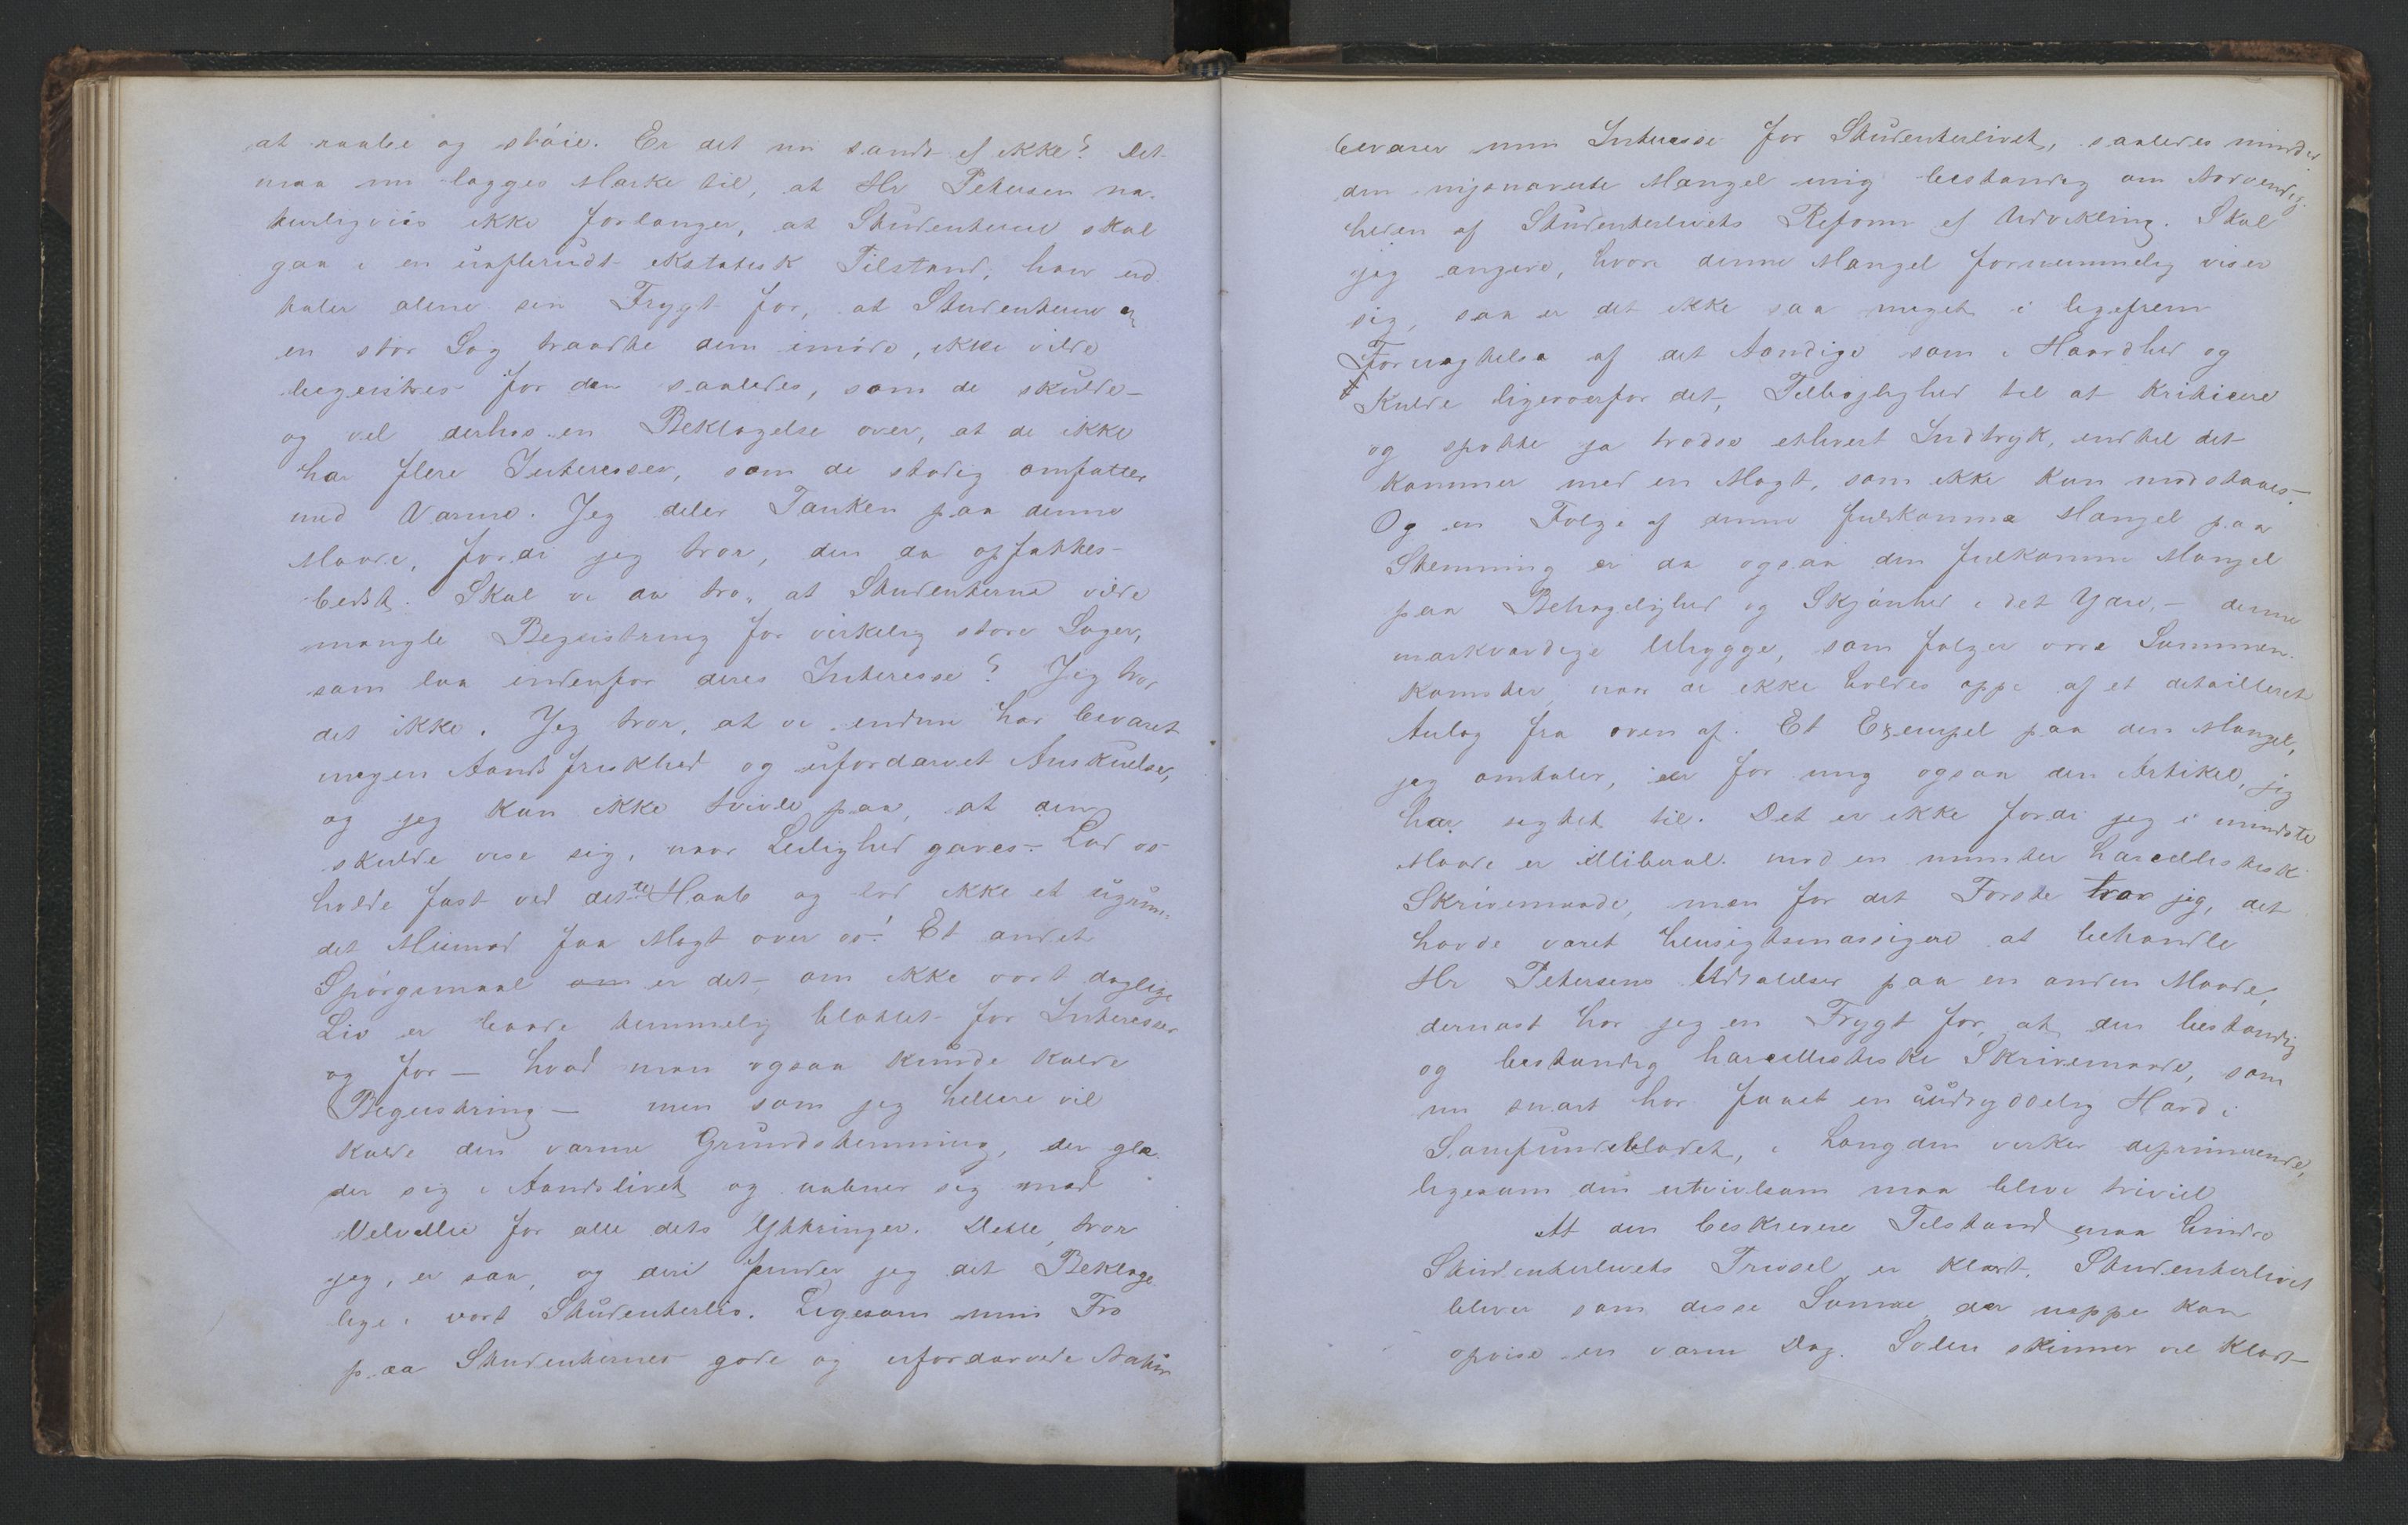 at raabe og støie. Er det nu sandt ell ikke? Det
maa nu lægges Mærke til, at Hr Petersen na-
turligviis ikke forlanger, at Studenterne skal
gaa i en uafbrudt ekstatisk Tilstand, han ud
taler alene sin Frygt for, at Studenterne om
en stor Sag traadte dem imøde, ikke vilde
begeistres for den saaledes, som de skulde –
og vel derhos en Beklagelse over, at de ikke
har flere Interesser, som de stadig omfatter
med Varme. Jeg deler Tanken paa denne
Maade, fordi jeg tror, den da opfattes
bedst. Skal vi da tro, at Studenterne vilde
mangle Begeistring for virkelig store Sager,
som laa indenfor deres Interesse? Jeg tror
det ikke. Jeg tror, at vi endnu har bevaret
megen Aandsfriskhed og ufordærvet Anskuelse,
og jeg kan ikke tvivle paa, at den
skulde vise sig, naar Leilighed gaves. Lad os
holde fast ved dette Haab og lad ikke et ugrun-
det Mismod faa Magt over os! Et andet
Spørgsmaal om er det, om ikke vort daglige
Liv er baade temmelig blottet for Interesser
og for – hvad man ogsaa kunde kalde
Begeistring – men som jeg hellere vil
kalde den varme Grundstemning, der glæ-
der sig i Aandslivet og aabner sig med
Velvillie for alle dets Yttringer. Dette, tror
jeg, er saa, og deri finder jeg det Beklage
lige i vort Studenterliv. Ligesom min Tro
paa Studenternes gode og ufordærvede Natur
bevarer min Interesse for Studenterlivet, saaledes minder
den nysnævnte Mangel mig bestandig om Nødvendig-
heden af Studenterlivets Reform ell Udvikling. Skal
jeg angive, hvori denne Mangel fornemmelig viser
sig, saa er det ikke saa meget i ligefrem
Foragtelse af det Aandige som i Haardhed og
Kulde ligeoverfor det, Tilbøjelighed til at kritisere
og spotte ja trodse ethvert Indtryk, indtil det
kommer med en Magt, som ikke kan modstaaes.
Og en Følge af denne fuldkomne Mangel paa
Stemning er da ogsaa den fuldkomne Mangel
paa Behagelighed og Skjønhed i det Ydre, – denne
mærkværdige Uhygge, som følger vore Sammen-
komster, naar de ikke holdes oppe af et detailleret
Anlæg fra oven af. Et Exempel paa den Mangel,
jeg omtaler, er for mig ogsaa den Artikel, jeg
har sigtet til. Det er ikke fordi jeg i mindste
Maade er illiberal mod en munter harcellistisk
Skrivemaade, men for det Første tror jeg, det
havde været hensigtsmæssigere at behandle
Hr Petersens Udtalelser paa en anden Maade,
dernæst har jeg en Frygt for, at den bestandig
og bestandig harcellistiske Skrivemaade, som
nu snart har faaet en uudryddelig Hævd i
Samfundsbladet, i Længden virker deprimerende,
ligesom den utvivlsom maa blive triviel
At den beskrevne Tilstand maa hindre
Studenterlivets Trivsel er klart. Studenterlivet
bliver som disse Somre der neppe kan
opvise en varm Dag. Solen skinner vel klart